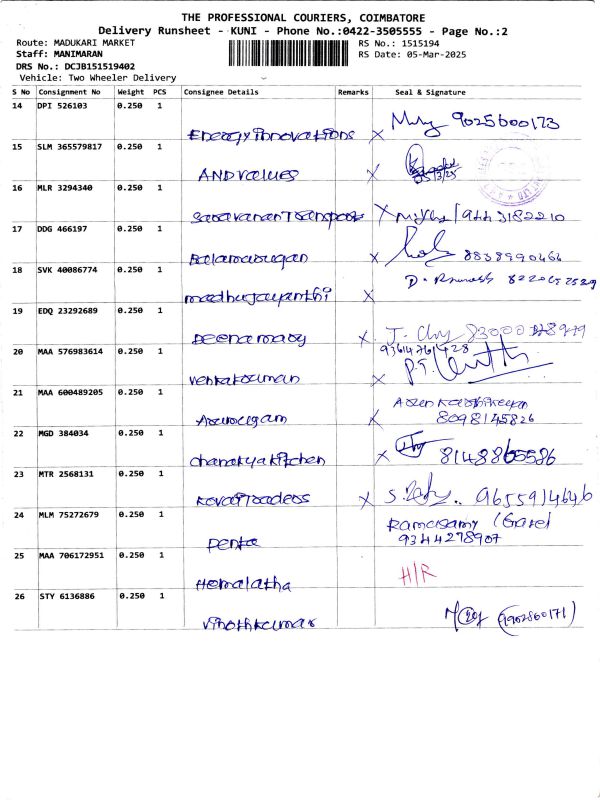 THE PROFESSIONAL COURIERS, COIMBATORE
Delivery Runsheet - KUNI - Phone No.:0422-3505555 - Page No.:2
Route: MADUKARI MARKET RS No.: 1515194
Staff: MANIMARAN RS Date: 05-Mar-2025
DRS No.: DCJB151519402
Vehicle: Two Wheeler Delivery
S No Consignment No Weight PCS Consignee Details Remarks Seal & Signature
14 DPI 526103 0.250 1
Energy innovations X 9025600173
15 SLM 365579817 0.250 1
AND values X 05/3/25
16 MLR 3294340 0.250 1
Saravanan Transport X 9443182210
17 DDG 466197 0.250 1
Balamurugan X 8838990464
18 SVK 40086774 0.250 1
madhujayanthi X
19 EDQ 23292689 0.250 1
Deenamary X J.
20 MAA 576983614 0.250 1 93614761428
Venkatkumar X P.T.
21 MAA 600489205 0.250 1
Arumugam X 8098145826
22 MGD 384034 0.250 1
chanakya kitchen X 8148865586
23 MTR 2568131 0.250 1
Kovai Traders X S. 9655914646
24 MLM 75272679 0.250 1 Ramasamy
Penta 9344278907
25 MAA 706172951 0.250 1 H/R
Hemalatha
26 STY 6136886 0.250 1
Vinothkumar (9902860171)